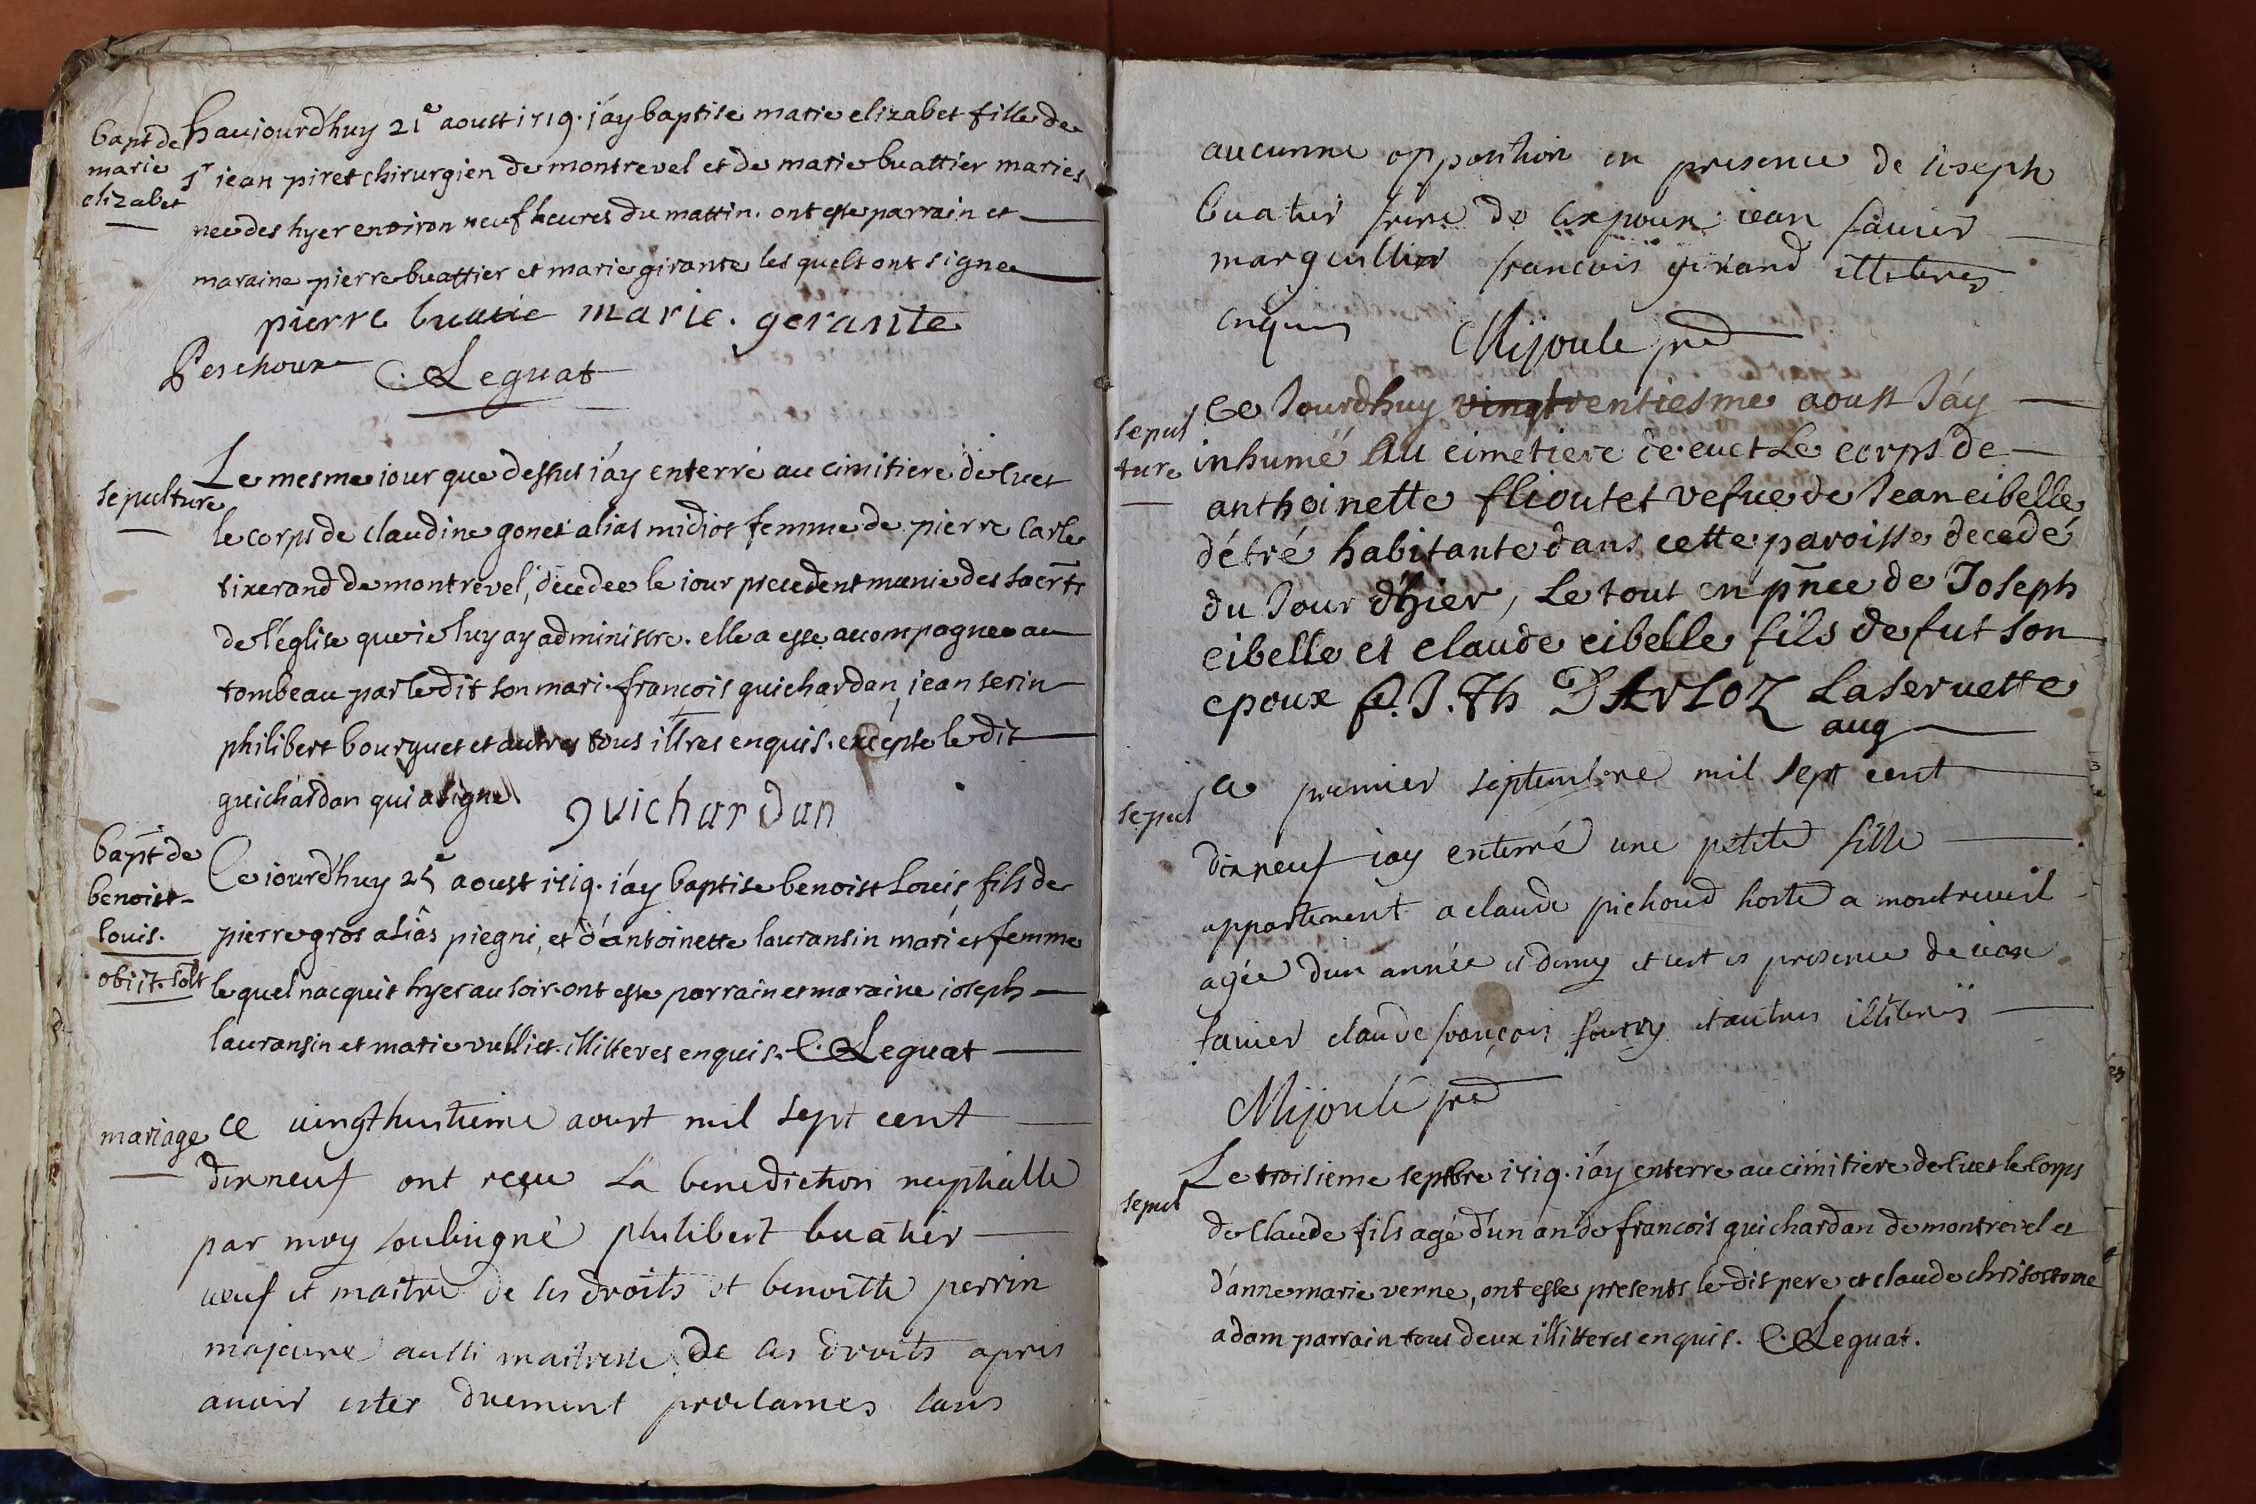 bapt de
marie
elizabet
haujourdhuy 21e aoust 1719. j'ay baptise marie elizabet fille de
sr jean piret chirurgien de montrevel et de marie buattier maries
nee des hyer environ neuf heures du mattin. ont esté parrain et
maraine pierre buattier et marie girante les quels ont signe
pierre buatie marie. gerante
Peschoux C. Leguat
sepulture
Le mesme jour que dessus j'ay enterré au cimitiere de cuet
le corps de claudine gonet alias midiot femme de pierre carle
tixerand de montrevel, decedee le jour precedent munie des sacrts
de l'église que je luy ay administre. elle a esté accompagnee au
tombeau par le dit son mari. françois guichardan, jean serin
philibert bourguet et autres tous illres enquis. excepte le dit
guichardan qui a signe guichardan
bapt de
benoist-
louis.
obiit. solt
Ce jourd'huy 25e aoust 1719. j'ay baptise benoist Louis fils de
pierre gros aliâs piegni, et d'antoinette lauransin mari et femme
le quel nacquit hyer au soir. ont esté parrain et maraine joseph
lauransin et marie vulliet. illitteres enquis. C. Leguat
mariage
ce vingthuitieme aoust mil sept cent
dixneuf ont reçu la benediction nuptialle
par moy soubsigné philibert buatier
veuf et maitre de ses droits et benoitte perrin
majeure aussi maitresse de ses droits apres
avoir ester duement proclames sans
aucunne opposition en presence de joseph
buatier frere de l'expoux jean favier
marguillier francois girand illiteres
enquis Mijoule pre
sepul
ture
Ce Jourdhuy vingt trentiesme aoust J'áy
inhumé Au cimetiere de cuet Le corps de
anthoinette flioutet vefue de Jean cibelle
d'étré habitante dans cette paroisse decedé
du Jour d'hier, Le tout en pnce de Joseph
cibelle et claude cibelle fils de fut son
epoux f. J. Th DARLOZ Laservette
aug
sepul
ce premier septembre mil sept cent
dixneuf jay enterré une petite fille
appartenent a claude pichoud hoste a montreveil
agée dun année et demy et cest es presence de jean
favier claude françois et autres illiteres
Mijoule pre
sepul
Le troisieme septbre 1719. j'ay enterre au cimitiere de Cuet le Corps
de Claude fils agé d'un an de francois guichardan de montrevel et
d'anne marie verne, ont esté presents le dit pere et claude chrisostome
adam parrain tous deux illitteres enquis. C. Leguat.